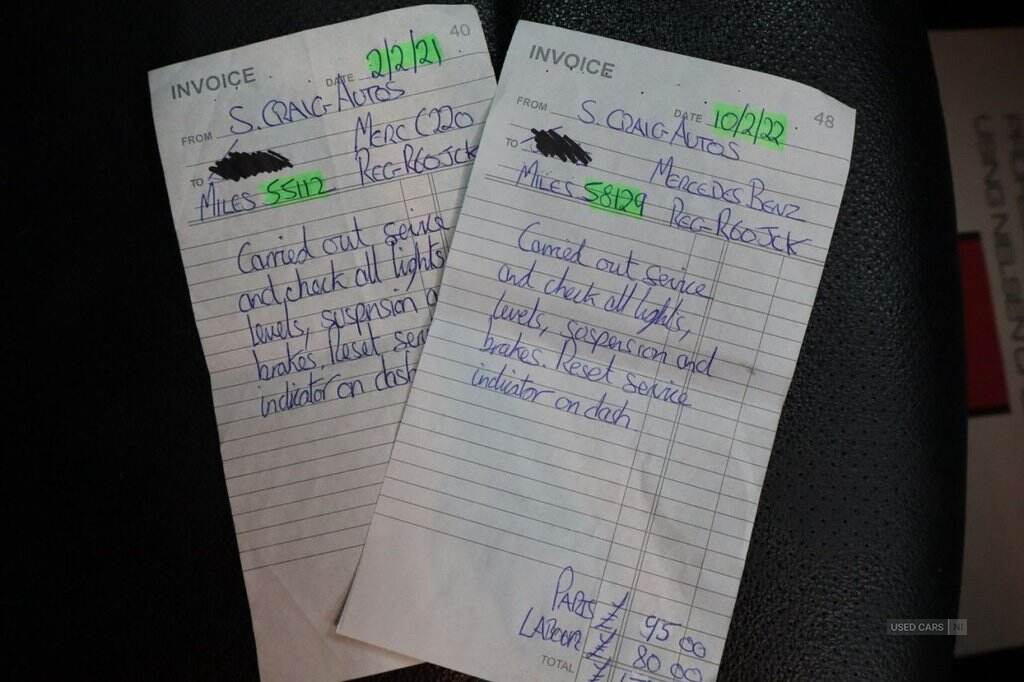 INVOICE 40
DATE 2/2/21
FROM S. CRAIG AUTOS
MERC C220
TO
MILES 55112 REG-R60JCK
Carried out service
and check all lights
levels, suspension
brakes. Reset
indicator on dash
INVOICE
DATE 10/2/22 48
FROM S. CRAIG AUTOS
TO
MERCEDES BENZ
MILES 58129 REG-R60JCK
Carried out service
and check all lights,
levels, suspension and
brakes. Reset service
indicator on dash
PARTS £ 95 00
LABOUR £ 80 00
TOTAL £
USED CARS NI